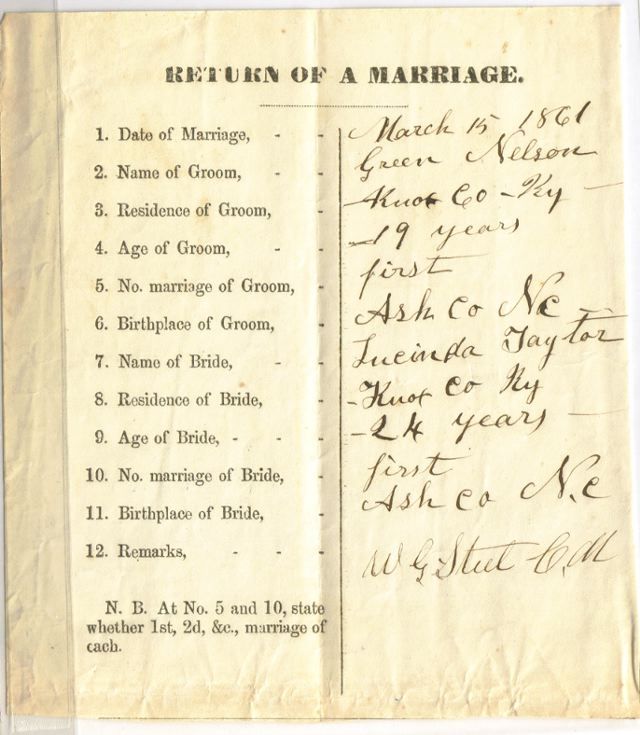 RETURN OF A MARRIAGE.
1. Date of Marriage, - - March 15 1861
2. Name of Groom, - - Green Nelson
3. Residence of Groom, - Knox Co Ky
4. Age of Groom, - - 19 years
5. No. marriage of Groom, - first
6. Birthplace of Groom, - Ash Co Nc
7. Name of Bride, - - Lucinda Taylor
8. Residence of Bride, - Knox Co Ky
9. Age of Bride, - - - 24 years
10. No. marriage of Bride, - first
11. Birthplace of Bride, - Ash Co N.C
12. Remarks, - - - W G C.M
N. B. At No. 5 and 10, state
whether 1st, 2d, &c., marriage of
each.